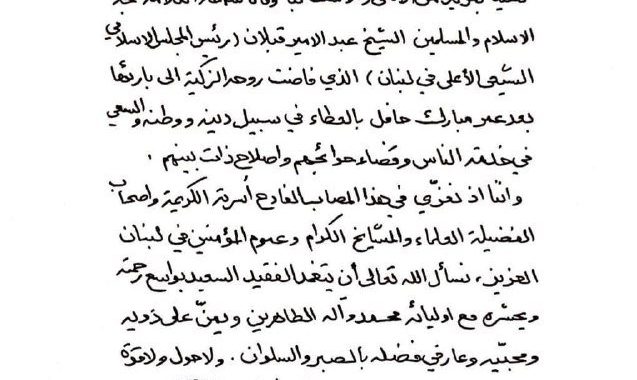 الاسلام والمسلمين الشيخ عبد الامير قبلان (رئيس المجلس الاسلامي
الشيعي الأعلى في لبنان) الذي فاضت روحه الزكية الى بارئها
بعد عمر مبارك حافل بالعطاء في سبيل دينه ووطنه والسعي
في خدمة الناس وقضاء حوائجهم واصلاح ذات بينهم .
واننا اذ نعزّي في هذا المصاب الفادح أسرته الكريمة واصحاب
الفضيلة العلماء والمشايخ الكرام وعموم المؤمنين في لبنان
العزيز، نسأل الله تعالى أن يتغمد الفقيد السعيد بواسع رحمته
ويحشره مع اوليائه محمد وآله الطاهرين ويمنّ على ذويه
ومحبّيه وعارفي فضله بالصبر والسلوان . ولا حول ولا قوة